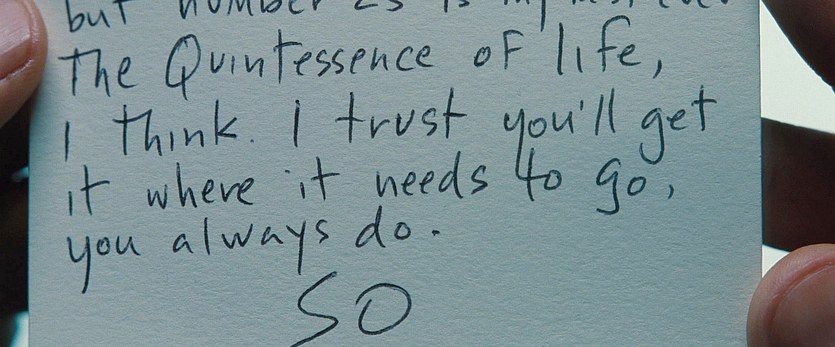 but number 25 is my best ever
The Quintessence of life,
I think. I trust you'll get
it where it needs to go,
you always do.
SO